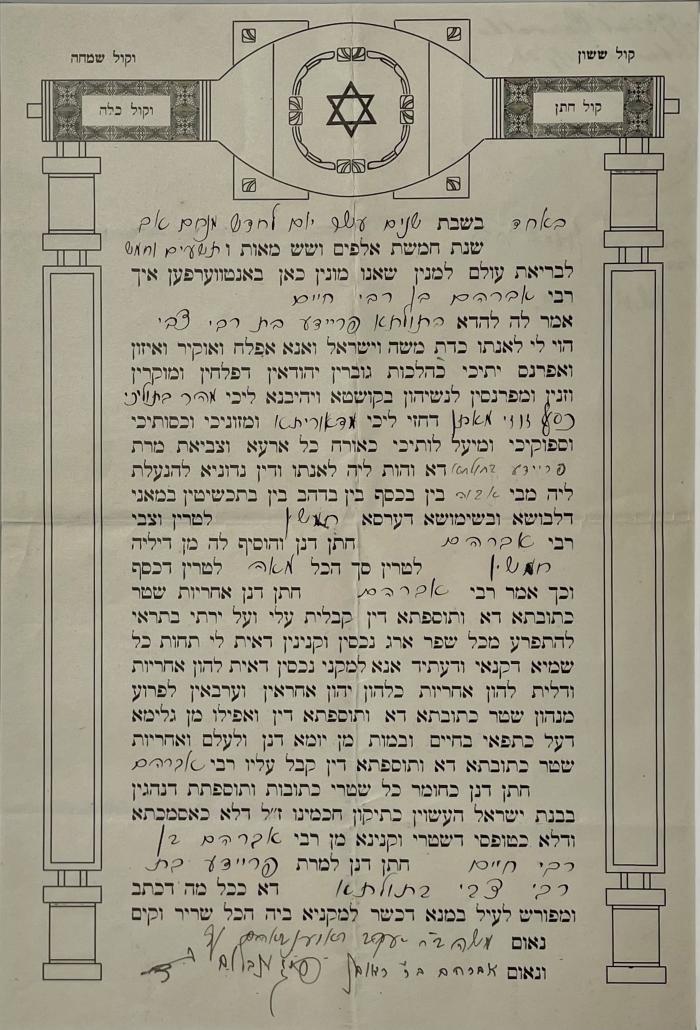 קול ששון
וקול שמחה
קול חתן
וקול כלה
באחד בשבת שנים עשר יום לחדש מנחם אב
שנת חמשת אלפים ושש מאות ותשעים וחמש
לבריאת עולם למנין שאנו מונין כאן באנטווערפען איך
רבי אברהם בן רבי חיים
אמר לה להדא בתולתא פריידע בת רבי צבי
הוי לי לאנתו כדת משה וישראל ואנא אפלח ואוקיר ואיזון
ואפרנס יתיכי כהלכות גוברין יהודאין דפלחין ומוקרין
וזנין ומפרנסין לנשיהון בקושטא ויהיבנא ליכי מהר בתוליכי
כסף זוזי מאתן דחזי ליכי מדאוריתא ומזוניכי וכסותיכי
וספוקיכי ומיעל לותיכי כאורח כל ארעא וצביאת מרת
פריידע בתולתא דא והות ליה לאנתו ודין נדוניא להנעלת
ליה מבי אבוה בין בכסף בין בדהב בין בתכשיטין במאני
דלבושא ובשימושא דערסא חמשין לטרין וצבי
רבי אברהם חתן דנן והוסיף לה מן דיליה
חמשין לטרין סך הכל מאה לטרין דכסף
וכך אמר רבי אברהם חתן דנן אחריות שטר
כתובתא דא ותוספתא דין קבלית עלי ועל ירתי בתראי
להתפרע מכל שפר ארג נכסין וקנינין דאית לי תחות כל
שמיא דקנאי ודעתיד אנא למקני נכסין דאית להון אחריות
ודלית להון אחריות כלהון יהון אחראין וערבאין לפרוע
מנהון שטר כתובתא דא ותוספתא דין ואפילו מן גלימא
דעל כתפאי בחיים ובמות מן יומא דנן ולעלם ואחריות
שטר כתובתא דא ותוספתא דין קבל עליו רבי אברהם
חתן דנן כחומר כל שטרי כתובות ותוספתת דנהגין
בבנת ישראל העשוין כתיקון חכמינו ז"ל דלא כאסמכתא
ודלא כטופסי דשטרי וקנינא מן רבי אברהם בן
רבי חיים חתן דנן למרת פריידע בת
רבי צבי בתולתא דא ככל מה דכתב
ומפורש לעיל במנא דכשר למקניא ביה הכל שריר וקים
נאום משה ב"ר יעקב
ונאום אברהם ב"ר